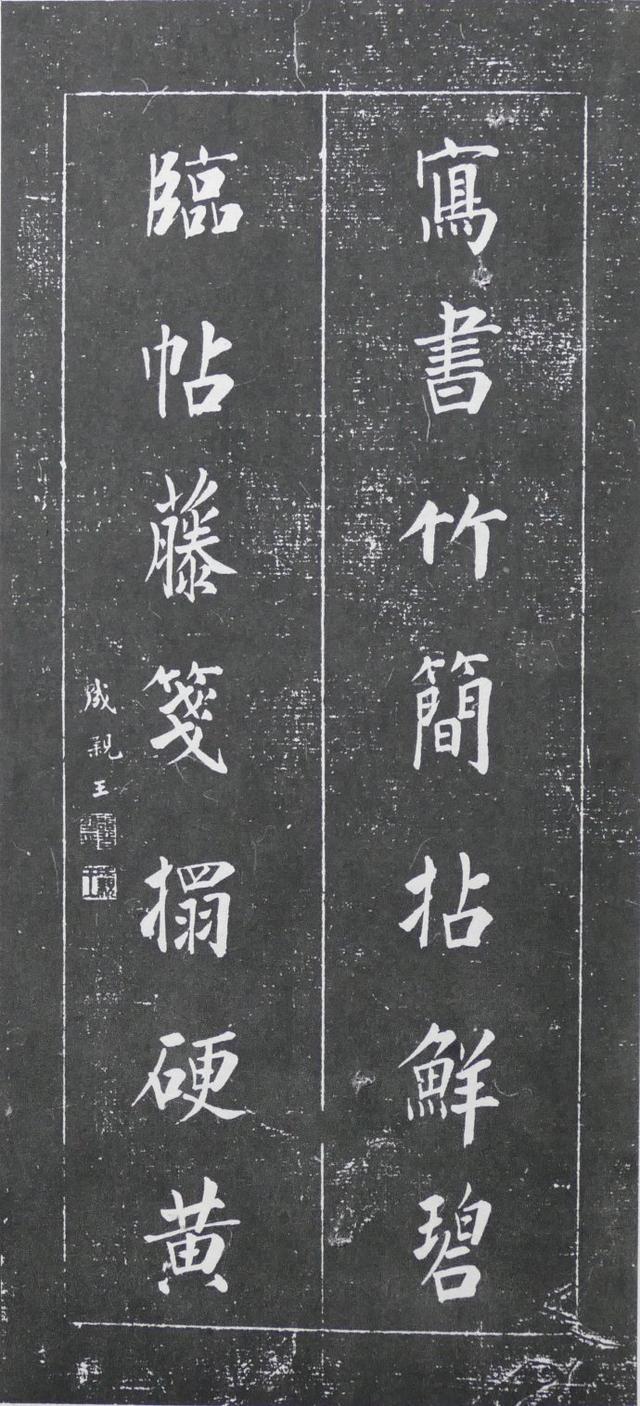 寫書竹簡拈鮮碧
臨帖藤箋搨硬黄
成親王